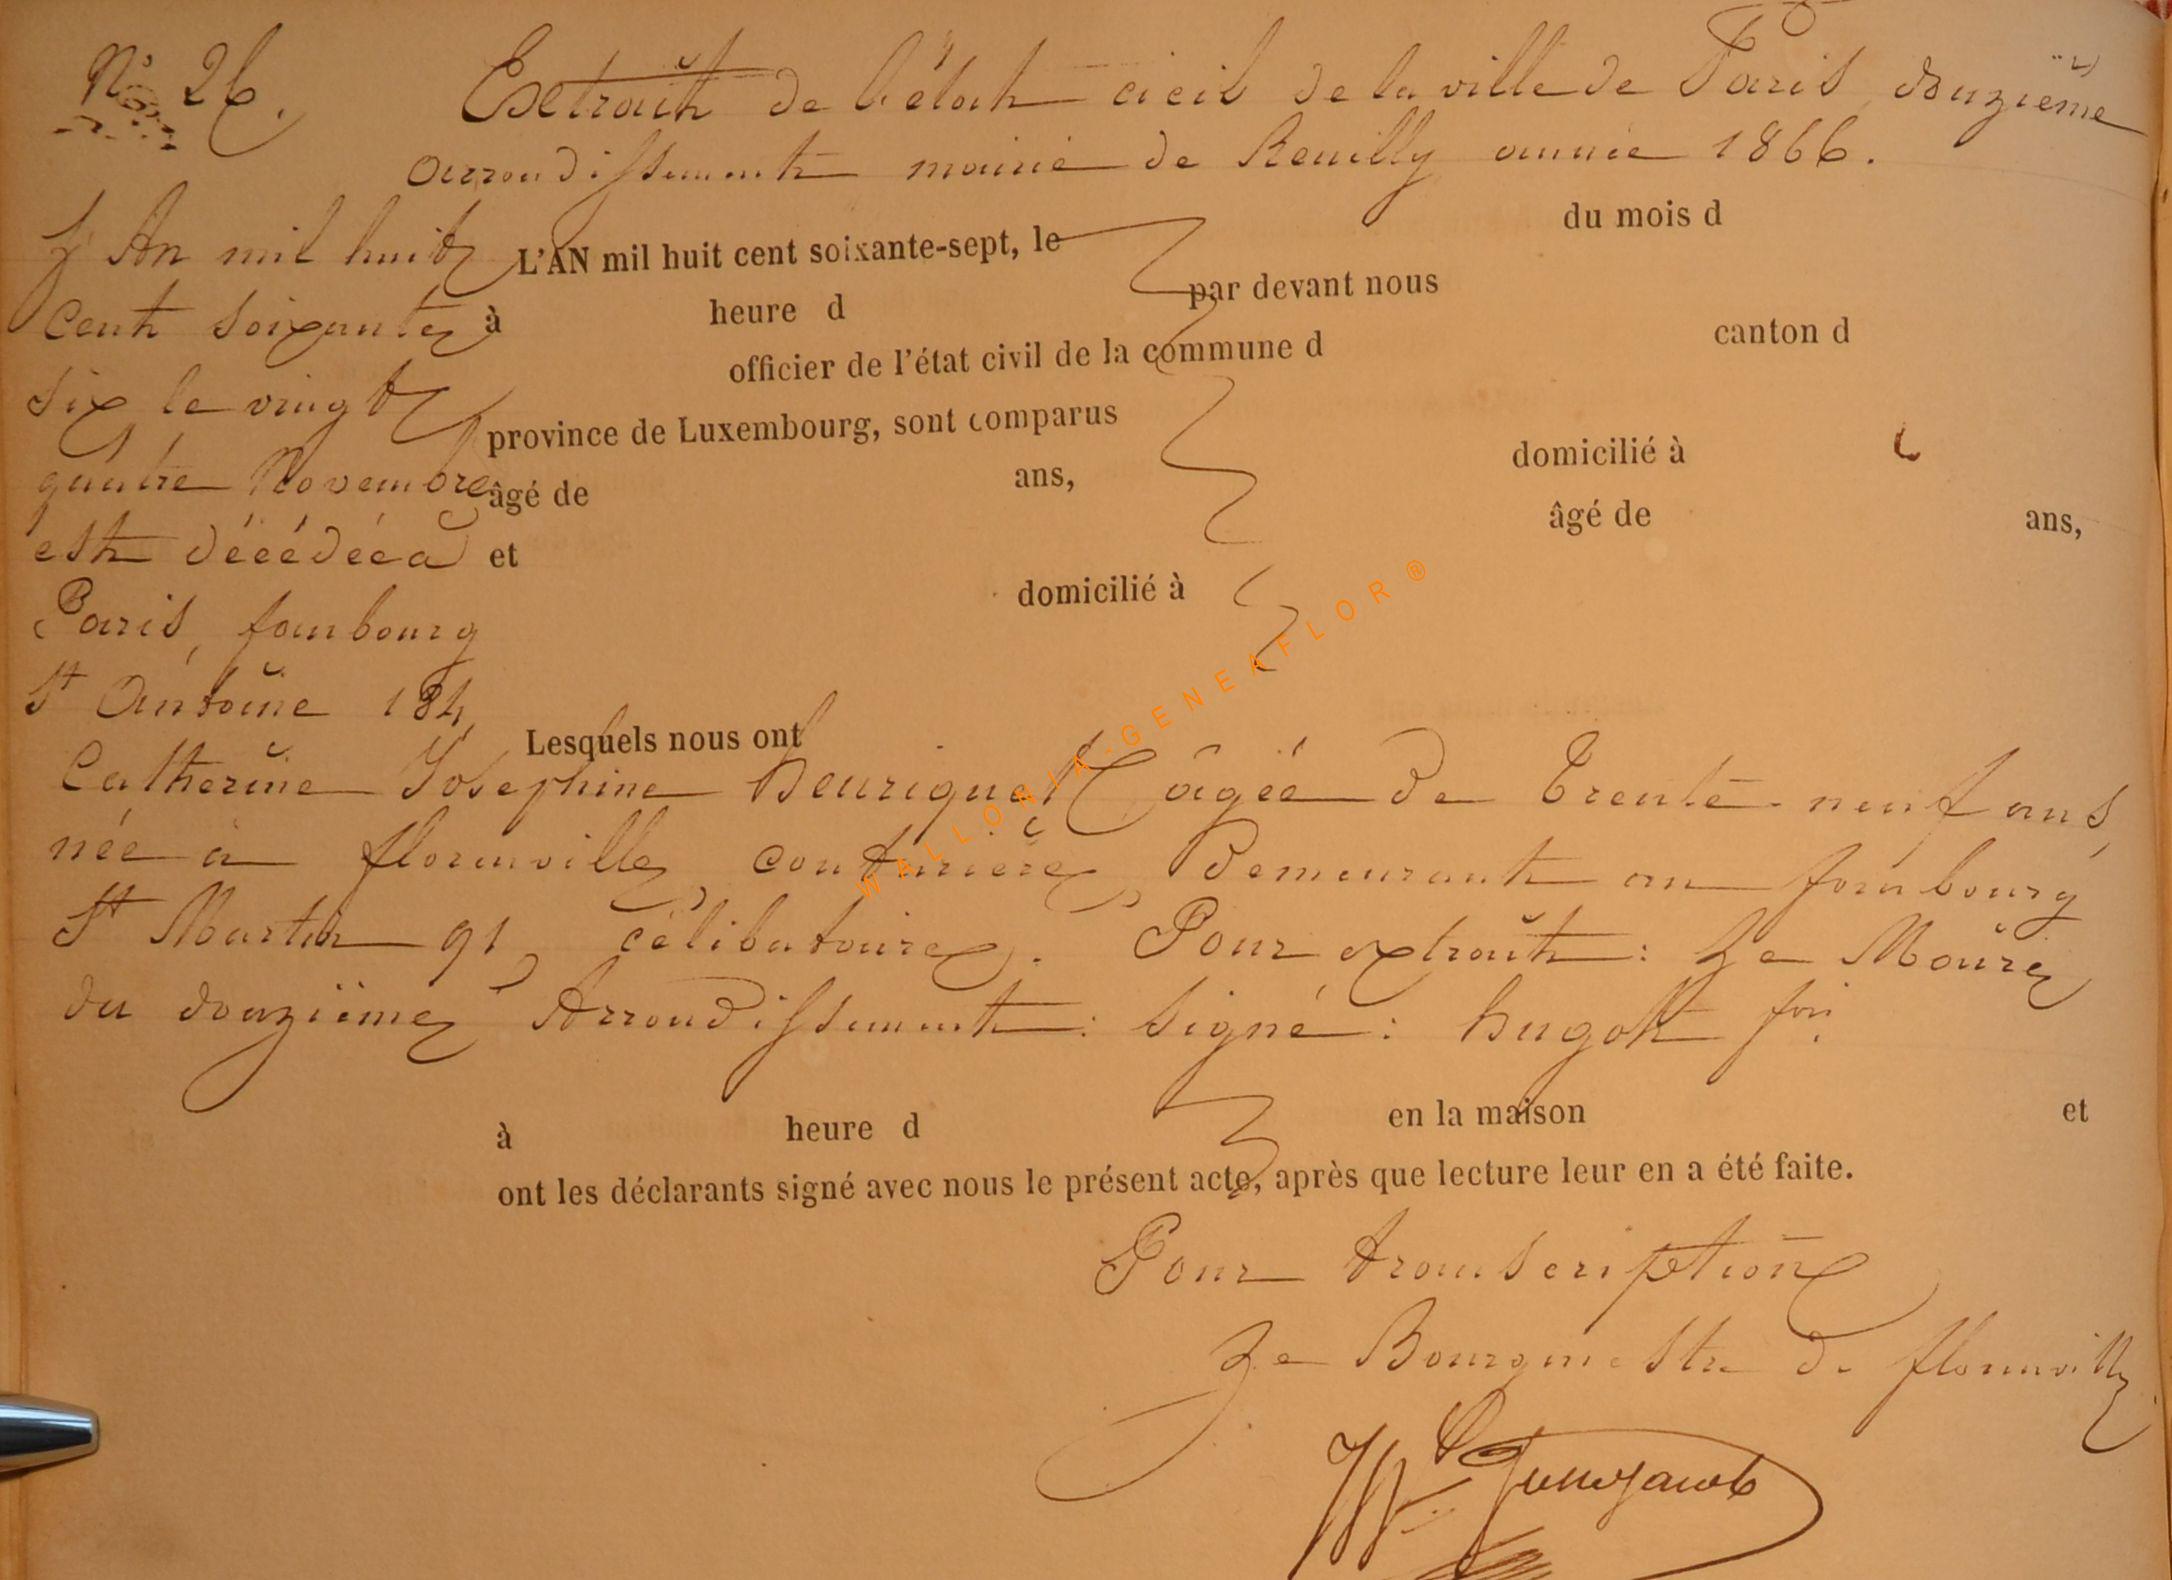 N° 26.
Extrait de l'état civil de la ville de Paris douzième
arrondissement mairie de Reuilly année 1866.
L'An mil huit
cent soixante
six le vingt
quatre Novembre
est décédée à
Paris, faubourg
St Antoine 184,
L'AN mil huit cent soixante-sept, le du mois d
à heure d par devant nous
officier de l'état civil de la commune d canton d
province de Luxembourg, sont comparus
âgé de ans, domicilié à
et âgé de ans,
domicilié à
Lesquels nous ont
Catherine Josephine henriquet âgée de Trente-neuf ans,
née à florenville, couturière, Demeurant au faubourg
St Martin 91, célibataire. Pour extrait : Le Maire
du douzième Arrondissement : signé : hugot
à heure d en la maison et
ont les déclarants signé avec nous le présent acte, après que lecture leur en a été faite.
Pour transcription
Le Bourgmestre de florenville
WALLONIA-GENEAFLOR ®